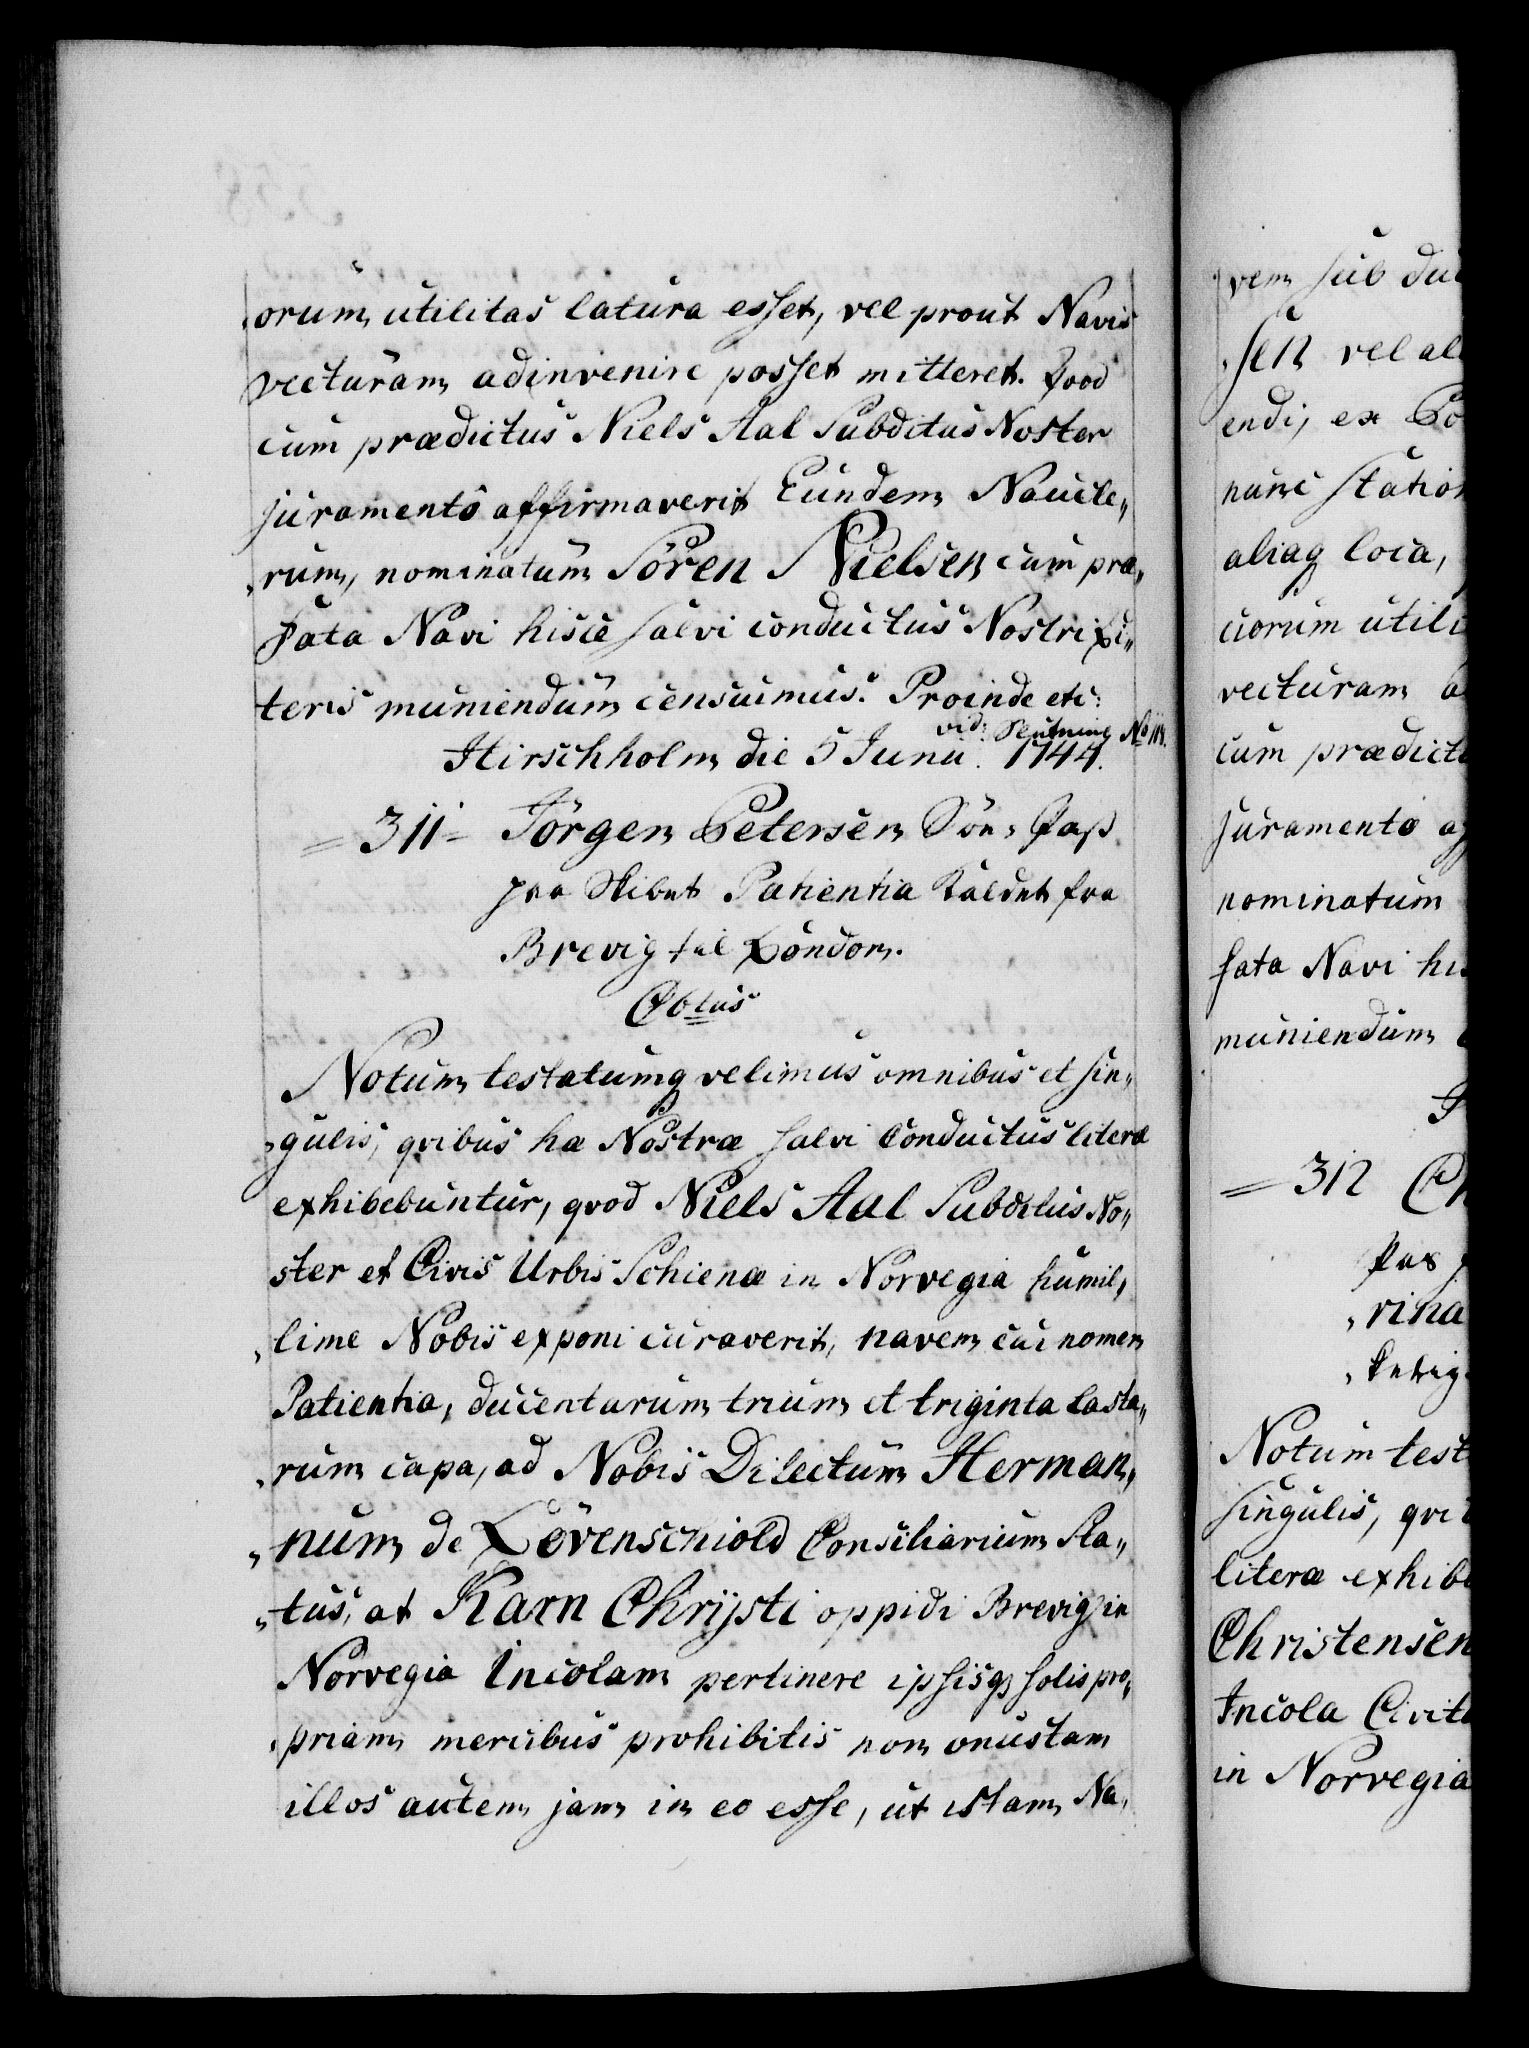 „orum utilitas latura esset, vel prout Navis
vecturam adinvenire posset mitteret. Qvod
cum prædictus Niels Aal Subditus Noster
juramento affirmaverit Eundem Naucle„
„rum, nominatum Sören Nielsen cum præ„
fata Navi hisce salvi conductus Nostri Li„
teris muniendum censuimus. Proinde etc:
vid: Slutning No 114.
Hirschholm die 5 Junii. 1744.
= 311 = Jörgen Petersen Söe-Pass
paa Skibet Patientia kaldet fra
Brevig til London.
Oblus
Notum testatumq velimus omnibus et sin„
„gulis, qvibus hæ Nostræ salvi Conductus literæ
exhibebuntur, qvod Niels Aal Subditus No„
ster et Civis Urbis Schienæ in Norvegia humil„
„lime Nobis exponi curaverit, navem cui nomen
Patientia, ducentarum trium et triginta lasta„
„rum capa, ad Nobis Dilectum Herman„
„num de Lövenschiold Consiliarium Sta„
„tus, at Karn Chrijsti oppidi Brevig in
Norvegia Incolam pertinere ipsisq solis pro„
„priam mercibus prohibitis non onustam
illos autem jam in eo esse, ut istam Na„
vem sub du
sen vel al
endi, ex Po
nunc Station
aliaq loca,
ciorum utili
vecturam a
cum prædict
juramento af
nominatum
fata Navi hi
muniendum
= 312 Ch
Pas
„rina
Notum test
singulis, qvi
literæ exhib
Christensen
Incola Civit
in Norvegia